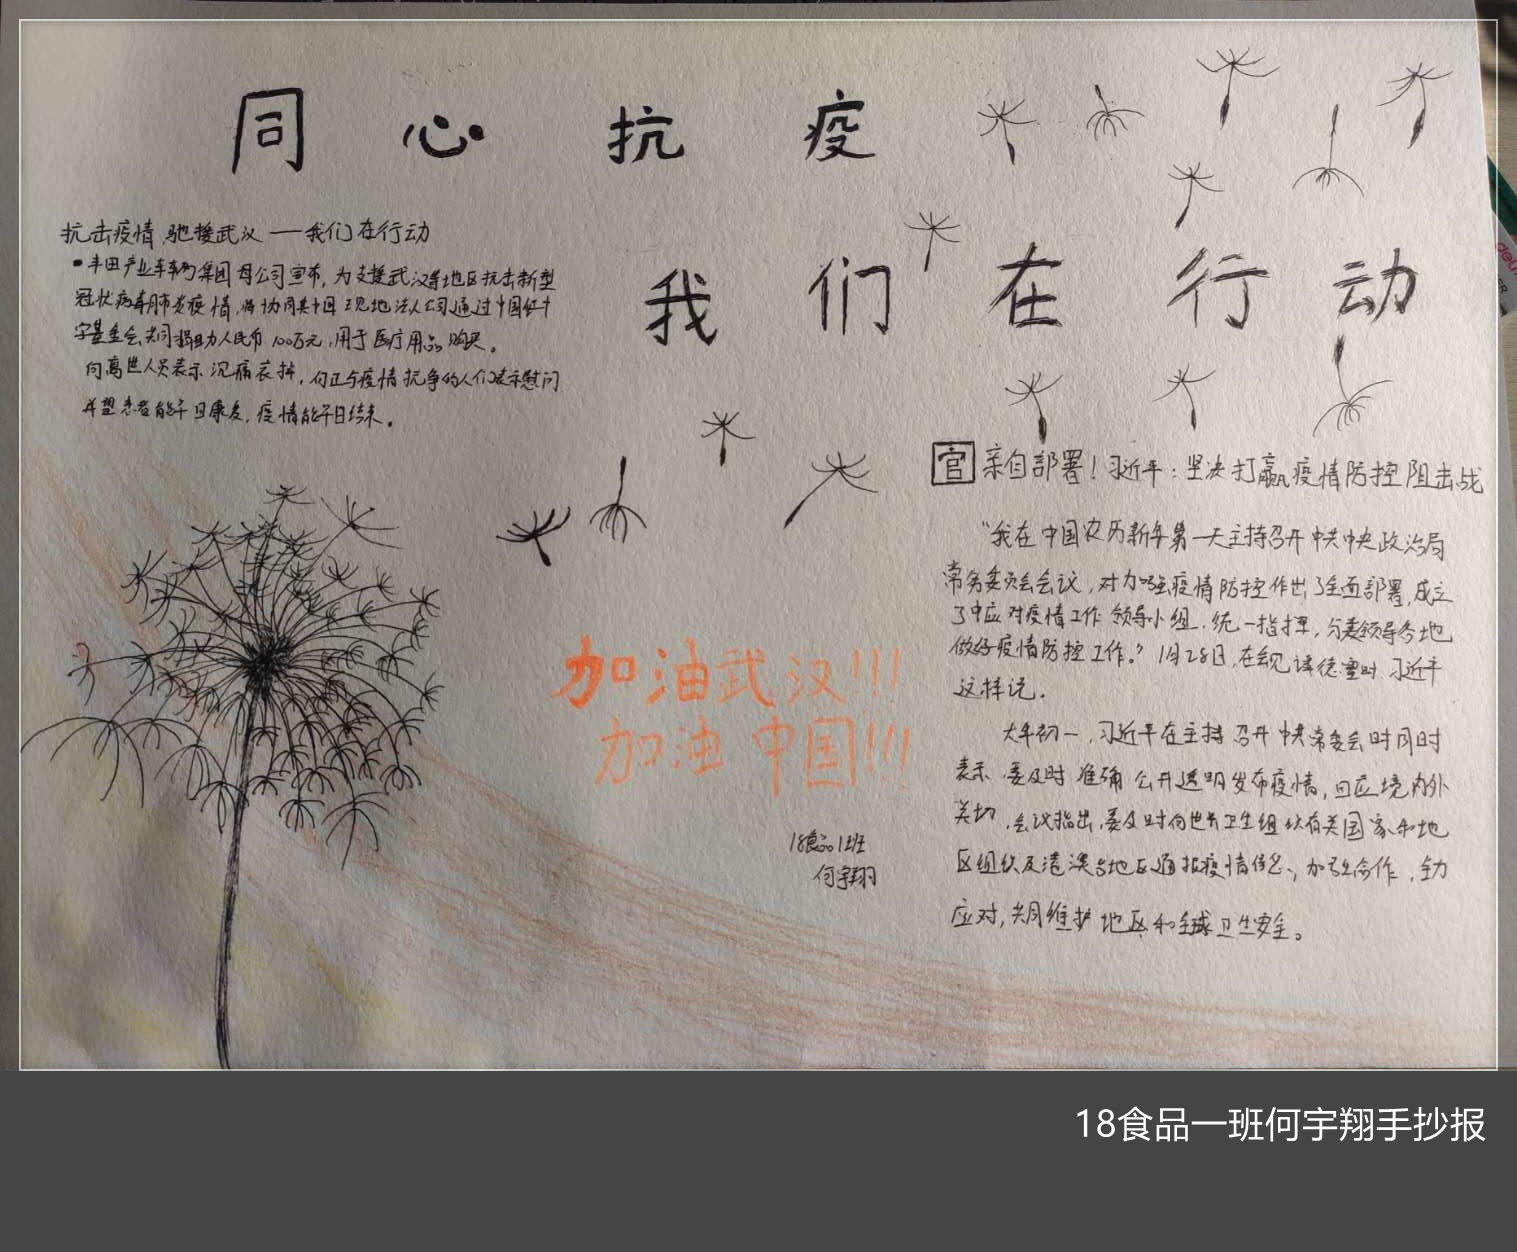 同心抗疫
我们在行动
抗击疫情 驰援武汉 ——我们在行动
▪丰田产业车辆集团母公司宣布,为支援武汉等地区抗击新型
冠状病毒肺炎疫情,将协同其中国现地法人公司通过中国红十
字基金会共同捐助人民币100万元,用于医疗用品购买。
向离世人员表示沉痛哀悼,向正与疫情抗争的人们表示慰问
希望患者能早日康复,疫情能早日结束。
官 亲自部署!习近平:坚决打赢疫情防控阻击战
“我在中国农历新年第一天主持召开中共中央政治局
常务委员会会议,对加强疫情防控作出了全面部署,成立
了中应对疫情工作领导小组,统一指挥,分类领导各地
做好疫情防控工作。”1月28日,在会见谭德塞时,习近平
这样说.
大年初一,习近平在主持召开中共常委会时同时
表示 要及时 准确 公开透明发布疫情,回应境内外
关切,会议指出,要及时向世界卫生组织有关国家和地
区组织及港澳台地区通报疫情信息,加强合作,全力
应对,共同维护地区和全球卫生安全。
加油武汉!!!
加油中国!!!
18食品1班
何宇翔
18食品一班何宇翔手抄报